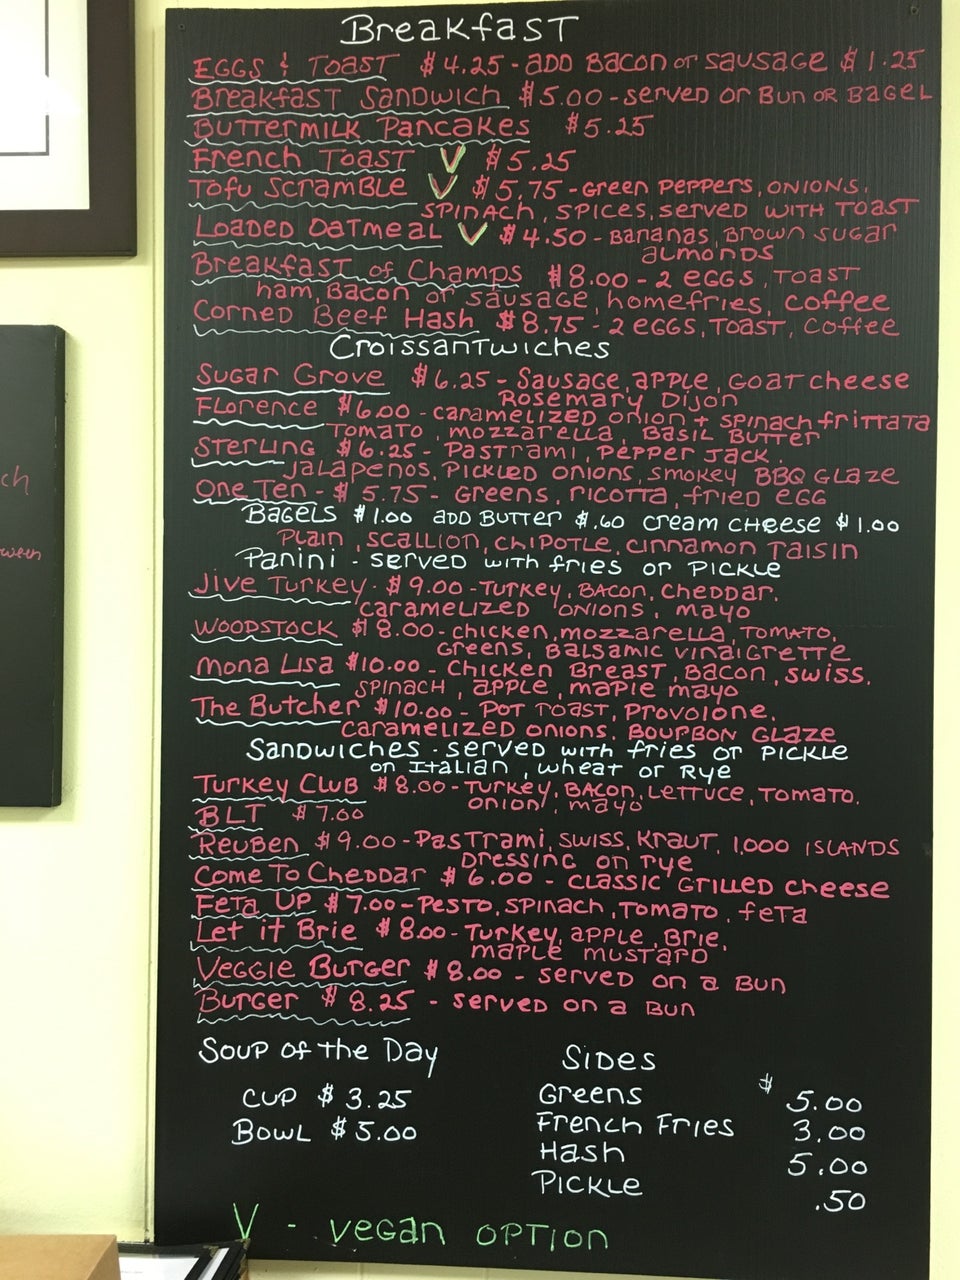 Breakfast
EGGS & TOAST $4.25 - ADD BACON or SAUSAGE $1.25
Breakfast Sandwich $5.00 - served or Bun or BAGEL
BUTTERMILK PANCAKES $5.25
French Toast V $5.25
Tofu Scramble V $5.75 - Green Peppers, ONIONS.
SPINACH, SPICES, served WITH TOAST
Loaded Oatmeal V $4.50 - Bananas, Brown sugar
almonds
Breakfast of Champs $8.00 - 2 eggs, Toast
ham, Bacon or sausage, homefries, coffee
Corned Beef Hash $8.75 - 2 EGGS, TOAST, Coffee
Croissantwiches
Sugar Grove $6.25 - Sausage, apple, Goat cheese
Rosemary Dijon
Florence $6.00 - caramelized onion + spinach frittata
Tomato, mozzarella, Basil Butter
Sterling $6.25 - Pastrami, Pepper Jack.
jalapenos, Pickled onions, smokey BBQ Glaze
One Ten - $5.75 - Greens, ricotta, fried egg
Bagels $1.00 add Butter $.60 cream cheese $1.00
Plain, scallion, chipotle, cinnamon raisin
Panini - served with fries or pickle
Jive Turkey - $9.00 - Turkey, Bacon, cheddar,
caramelized onions, mayo
Woodstock $8.00 - chicken, mozzarella, Tomato,
Greens, Balsamic vinaigrette
Mona Lisa $10.00 - Chicken Breast, Bacon, swiss,
spinach, apple, maple mayo
The Butcher $10.00 - Pot Toast, Provolone,
caramelized onions. Bourbon Glaze
Sandwiches - served with fries or pickle
on Italian, wheat or Rye
Turkey Club $8.00 - Turkey, Bacon, Lettuce, Tomato.
onion, mayo
BLT $7.00
Reuben $9.00 - Pastrami, Swiss, Kraut, 1,000 Islands
Dressing on rye
Come To Cheddar $6.00 - Classic Grilled cheese
Feta Up $7.00 - Pesto, Spinach, Tomato, feta
Let it Brie $8.00 - Turkey, apple, Brie,
maple mustard
Veggie Burger $8.00 - served on a Bun
Burger $8.25 - served on a Bun
Soup of the Day
Cup $3.25
Bowl $5.00
Sides
Greens $5.00
French Fries 3.00
Hash 5.00
Pickle .50
V - vegan option
ch
ween